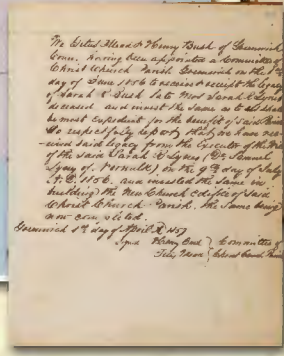 We Silus Mead & Henry Bush of Greenwich
Conn. having been appointed a Committee of
Christ Church Parish Greenwich on the
day of June 1856 to receive & receipt the legacy
of Sarah E Bush late Mrs Sarah E Lyon
deceased and invest the same as to us shall
be most expedient for the benefit of said Parish
do respectfully report, that we have rec
-eived said legacy from the Executor of the Will
of the said Sarah E Lyon (Dr Samuel
Lyon of Norwalk) on the 9th day of July
A.D. 1856. and invested the same in
building the New Church Edifice of Said
Christ Church Parish, the same being
now completed.
Greenwich 5th day of April A 1857
Signed Henry Bush } Committee of
Silus Mead } Christ Church Parish